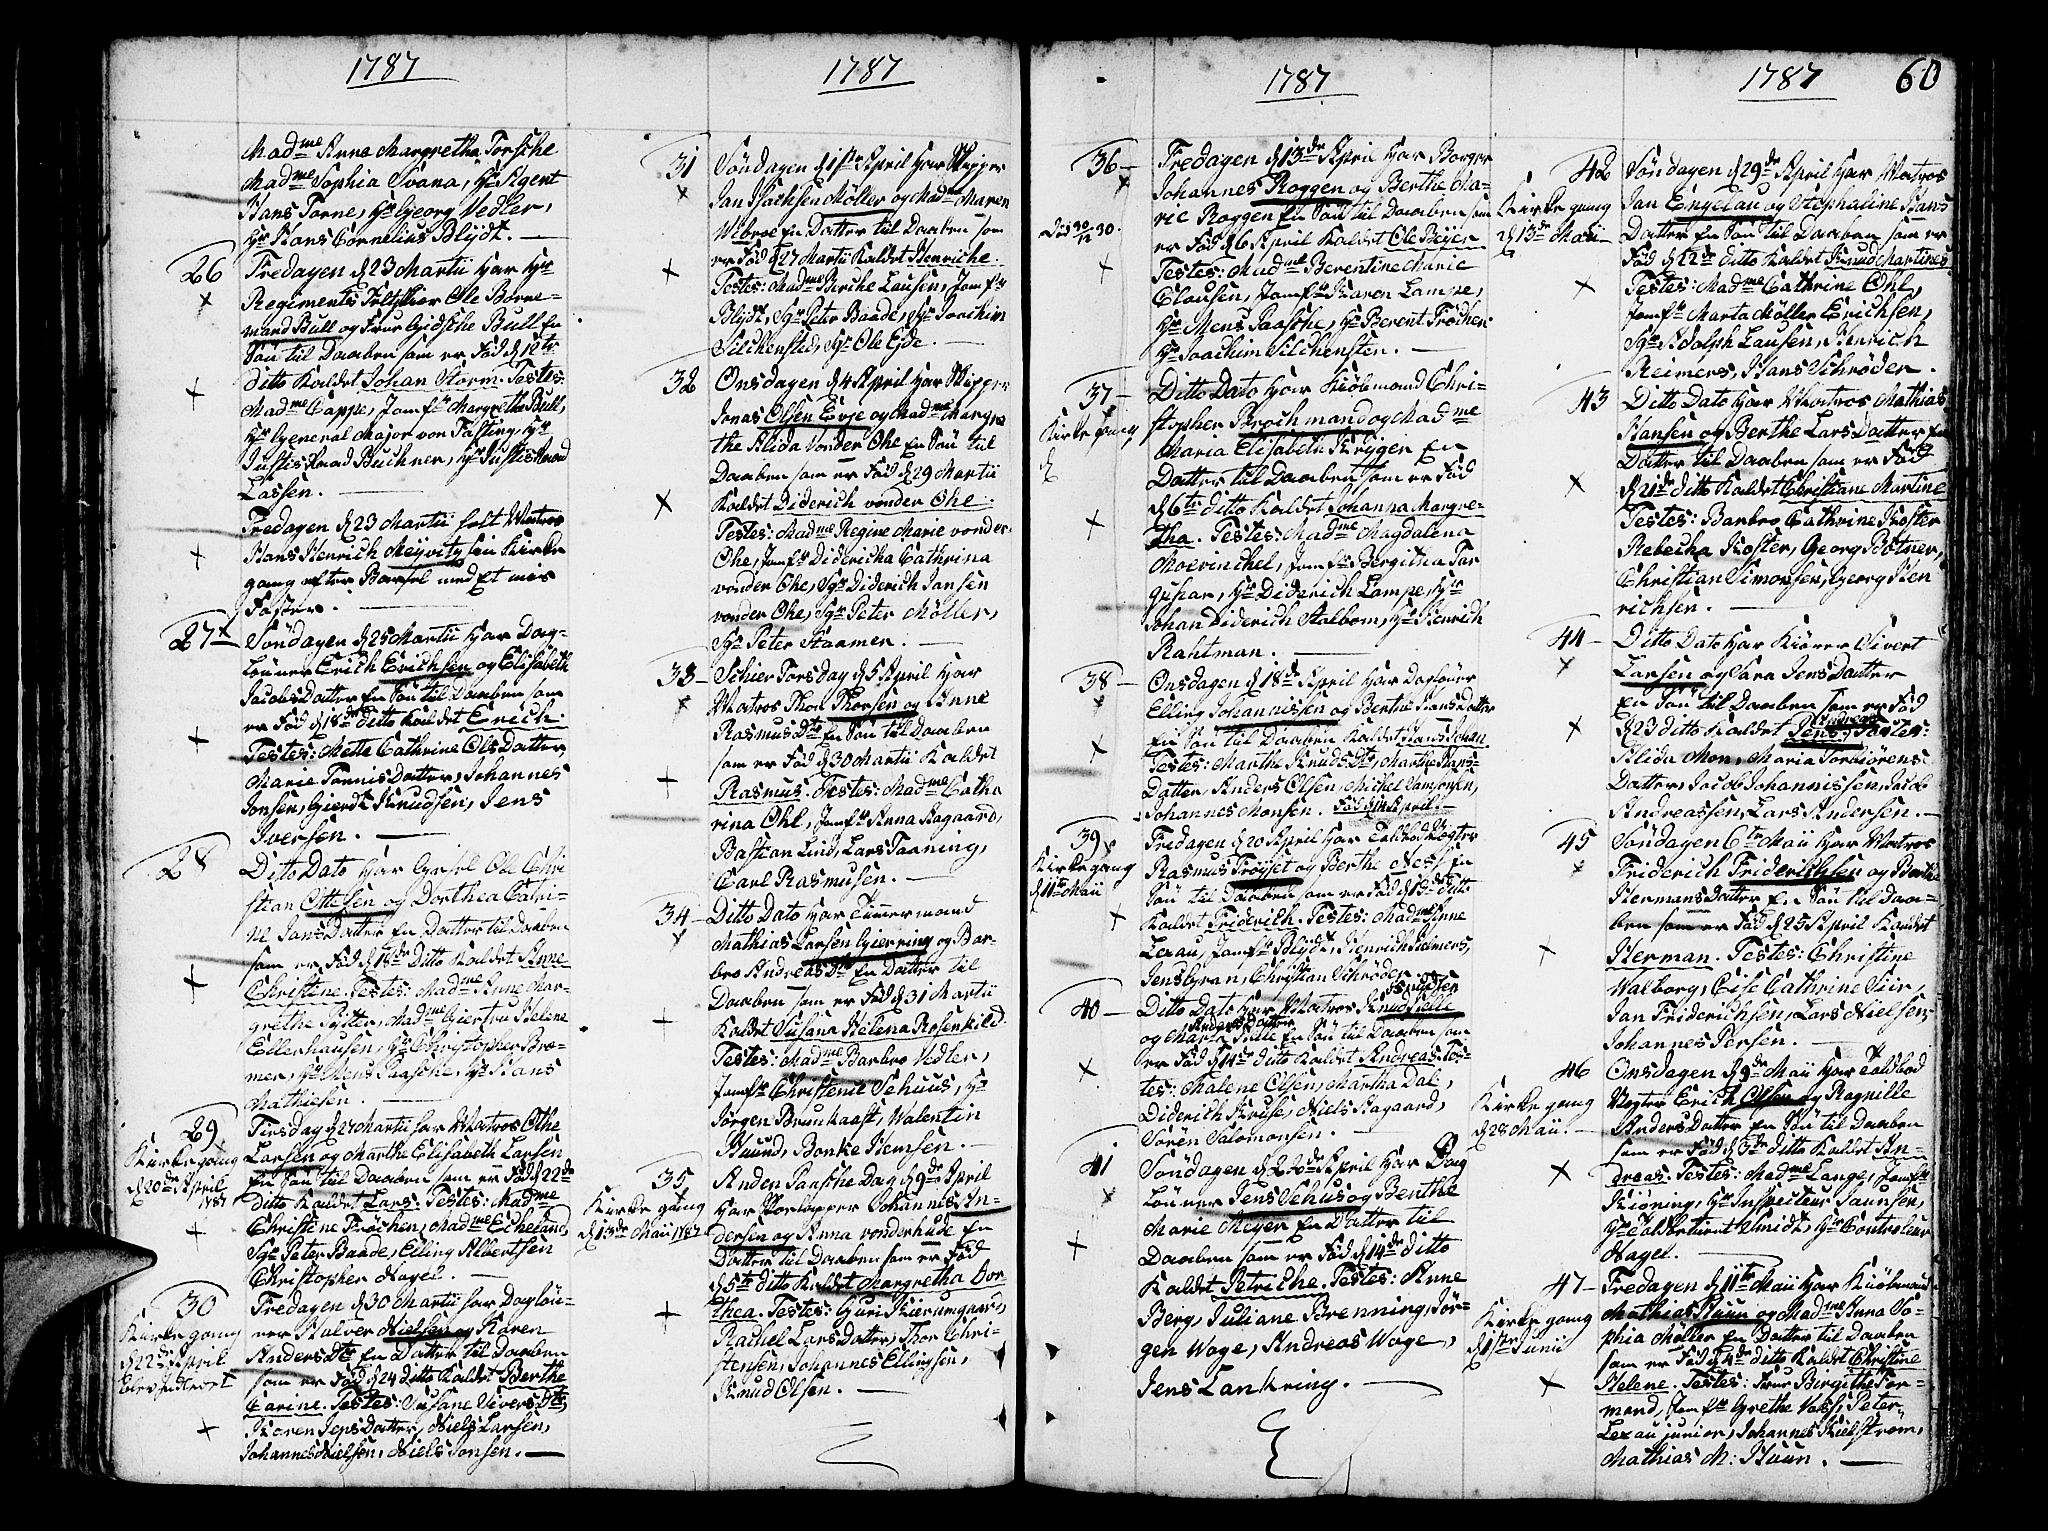 1787
Madme Anna Margretha Forsche
Madme Sophia Svana, Hr Agent
Hans Torne, Hr Georg Vedler,
Hr Hans Cornelius Blijdt.
26
Fredagen d 23 Martii har Hr
Regiments Feltskier Ole Borne-
mand Bull og Frue Gidsche Bull En
Søn til Daaben som er Fød d 12te
ditto Kaldet Johan Storm. Testes:
Madme Cappe, Jomfr Margrethe Bull,
Hr General Major von Fasting, Hr
Justis Raad Buchner, Hr Justis Raad
Lassen.
Fredagen d 23 Martii holt Matros
Hans Henrich Meyvitz sin Kirke
gang efter Barsel med Et mis
Foster.
27
Søndagen d 25 Martii har Dag-
Lønner Erich Erichsen og Elisabeth
Jacobs Datter En Søn til Daaben som
er Fød d 18de ditto Kaldet Erich.
Testes: Mette Cathrine Ols Datter
Marie Tønnis Datter, Johannes
Jonsen, Gierdt Knudsen, Jens
Iversen.
28
Ditto Dato har Gesel Ole Chri-
stian Ottesen og Dorthea Catri-
ne Jans Datter En Datter til Daaben
som er Fød d 18de Ditto Kaldet Anne
Christine. Testes: Madme Anne Mar-
grethe Pytter, Madme Giertru Helene
Ellerhausen, Hr Christopher Brø-
mer, Hr Mens Paasche, Hr Hans
Mathiesen.
29
Kirke gang
d 20de April
1787
Tirsdag d 27 Martii har Matros Othe
Larsen og Marthe Elisabeth Larsen
En Søn til Daaben som er Fød d 22de
ditto Kaldet Lars. Testes: Madme
Christine Frøchen, Madme Echeland,
Sgr Peter Baade, Elling Albertsen
Christopher Nagel.
30
Kirke gang
d 22de April
Fredagen d 30 Martii har Dagløn-
ner Halver Nielsen og Karen
Anders Dtr En Datter til Daaben
som er Fød d 24 ditto Kaldet Berthe
Carine. Testes: Susane Sivers Dtr,
Karen Jeps Datter, Niels Larsen,
Johannes Nielsen, Niels Jonsen.
1787
31
Søndagen d 1ste April har Skipper
Jan Isachsen Møller og Madme Maren
Wibroe En Datter til Daaben som
er Fød d 27 Martii Kaldet Henriche.
Testes: Madme Birche Lausen, Jomfr
Blijdt, Sgr Peter Baade, Sgr Joachim
Silchensted, Sgr Ole Eide.
32
Onsdagen d 4 April har Skipper
Jonas Olsen Evje og Madme Margre
the Alida vonder Ohe En Søn til
Daaben som er Fød d 29 Martii
Kaldet Diderich vonder Ohe.
Testes: Madme Regine Marie vonder
Ohe, Jomfr Didericha Cathrina
vonder Ohe, Sgr Diderich Jansen
vonder Ohe, Sgr Peter Møller,
Sgr Peter Staamer.
33
Schier Torsdag d 5 April har
Matros Thor Thorsen og Anne
Rasmus Dtr En Søn til Daaben
som er Fød d 30 Martii Kaldet
Rasmus. Testes: Madme Catha
rina Ohl, Jomfr Anna Aagaard,
Bastian Lind, Lars Taaning,
Carl Rasmusen.
34
Ditto Dato har Timmermand
Mathias Larsen Gierring og Bar-
bro Andreas Dtr En Datter til
Daaben som er Fød d 31 Martii
Kaldet Susana Helena Rosenkild.
Testes: Madme Barbro Vedler,
Jomfr Christense Schuus, Hr
Jørgen Brunkaaft, Walentin
Huund, Bonke Hemsen.
35
Kirke gang
d 13de Maii 1787
Anden Paasche Dag d 9de April
har Porløpper Johannes An-
dersen og Anna vonderhude En
Datter til Daaben som er Fød
d 5te ditto Kaldet Margretha Dor
thea. Testes: Guri Kierumgaard,
Rachel Lars Datter, Thor Chri-
stensen, Johannes Ellingsen,
Knud Olsen.
1787
36
Død 30/12 30.
Fredagen d 13de April har Borger
Johannes Roggen og Berthe Ma-
rie Roggen En Søn til Daaben som
er Fød d 6 April Kaldet Ole Beyer
Testes: Madme Berentine Marie
Clausen, Jomfr Karen Lampe,
Hr Mens Paasche, Hr Berent Frøchen
Hr Joachim Silchensten.
37
Kirke gang
d
Ditto Dato har Kiøbmand Chri-
stopher Brochmand og Madme
Maria Elisabeth Krygen En
Datter til Daaben som er Fød
d 6te ditto Kaldet Johanna Margre-
tha. Testes: Madme Magdalena
Moevinckel, Jomfr Bergitha Far
gusar, Hr Diderich Lampe, Hr
Johan Diderich Stalbom, Hr Henrich
Rahtman.
38
Onsdagen d 18de April har Dagløner
Elling Johannissen og Berthe Hans Datter
En Søn til Daaben Kaldet Hans Johan
Testes: Marthe Knuds Dtr, Marthe Hans-
Datter, Anders Olsen, Michel Samsonsen,
Johannes Monsen. Fød d 14 April
39
Kirke gang
d 11te Maii
Fredagen d 20 April har Toldbod Vogter
Rasmus Frøyset og Berthe Nesh En
Søn til Daaben som er Fød d 13de ditto
Kaldet Friderich. Testes: Madme Anne
Lexau, Jomfr Blijdt, Henrich Reimers,
Jens Gran, Christian Schrøder.
40
Ditto Dato har Matros Knud Sille Knudsen
og Marte Sille Anders Datter En Søn til Daaben som
er Fød d 14de ditto Kaldet Andreas. Tes-
tes: Malene Olsen, Martha Dal,
Diderich Kruse, Niels Aagaard,
Søren Salomonsen.
41
Søndagen d 22de April har Dag
Lønner Jens Schus og Berthe
Marie Meyer En Datter til
Daaben som er Fød d 14de ditto
Kaldet Petriche. Testes: Anne
Berg, Juliane Brenning, Jør-
gen Wage, Andreas Wage,
Jens Lankring.
1787
60
42
Kirke gang
d 13de Maii
Søndagen d 29de April har Matros
Jan Engelau og Stephaline Hans
Datter En Søn til Daaben som er
Fød d 22de ditto Kaldet Knud Martines
Testes: Madme Cathrine Ohl,
Jomfr Marta Møller Erichsen,
Sgr Adolph Lausen, Henrich
Reimers, Hans Schrøder.
43
Ditto Dato har Matros Mathias
Hansen og Berthe Lars Datter En
Datter til Daaben som er Fød
d 21de ditto Kaldet Christiane Martine
Testes: Barbro Cathrine Koster
Rebecha Koster, Georg Bøtner,
Christian Simonsen, Georg Hen
richsen.
44
Ditto Dato har Kiører Sivert
Larsen og Sara Jens Datter
En Søn til Daaben som er Fød
d 23 ditto Kaldet Jens Andreas. Testes:
Alida Mon, Maria Torbiørens
Datter, Jacob Johannissen, Jacob
Andreassen, Lars Andersen.
45
Søndagen 6te Maii har Matros
Friderich Friderichsen og Berthe
Hermans Datter En Søn til Daa-
ben som er Fød d 25 April Kaldet
Herman. Testes: Christine
Walborg, Cise Cathrine Siir,
Jan Friderichsen, Lars Nielsen,
Johannes Persen.
46
Kirke gang
d 28 Maii.
Onsdagen d 9de Maii har Toldbod
Vogter Erich Olsen og Ragnille
Anders Datter En Søn til Daaben
som er Fød d 3de ditto Kaldet An-
dreas. Testes: Madme Lange, Jomfr
Kiøning, Hr Inspecteur Jaunsen,
Hr Told betient Smidt, Hr Controleur
Nagel.
47
Kirke gang
d 1ste Junii
Fredagen d 11te Maii har Kiøbmand
Mathias Huun og Madme Anna So-
phia Møller En Datter til Daaben
som er Fød d 4de ditto Kaldet Christine
Helene. Testes: Frue Bergithe For-
mand, Jomfr Grethe Vass, Peter
Lexau junior, Johannes Kielstrøm,
Mathias M: Huun.